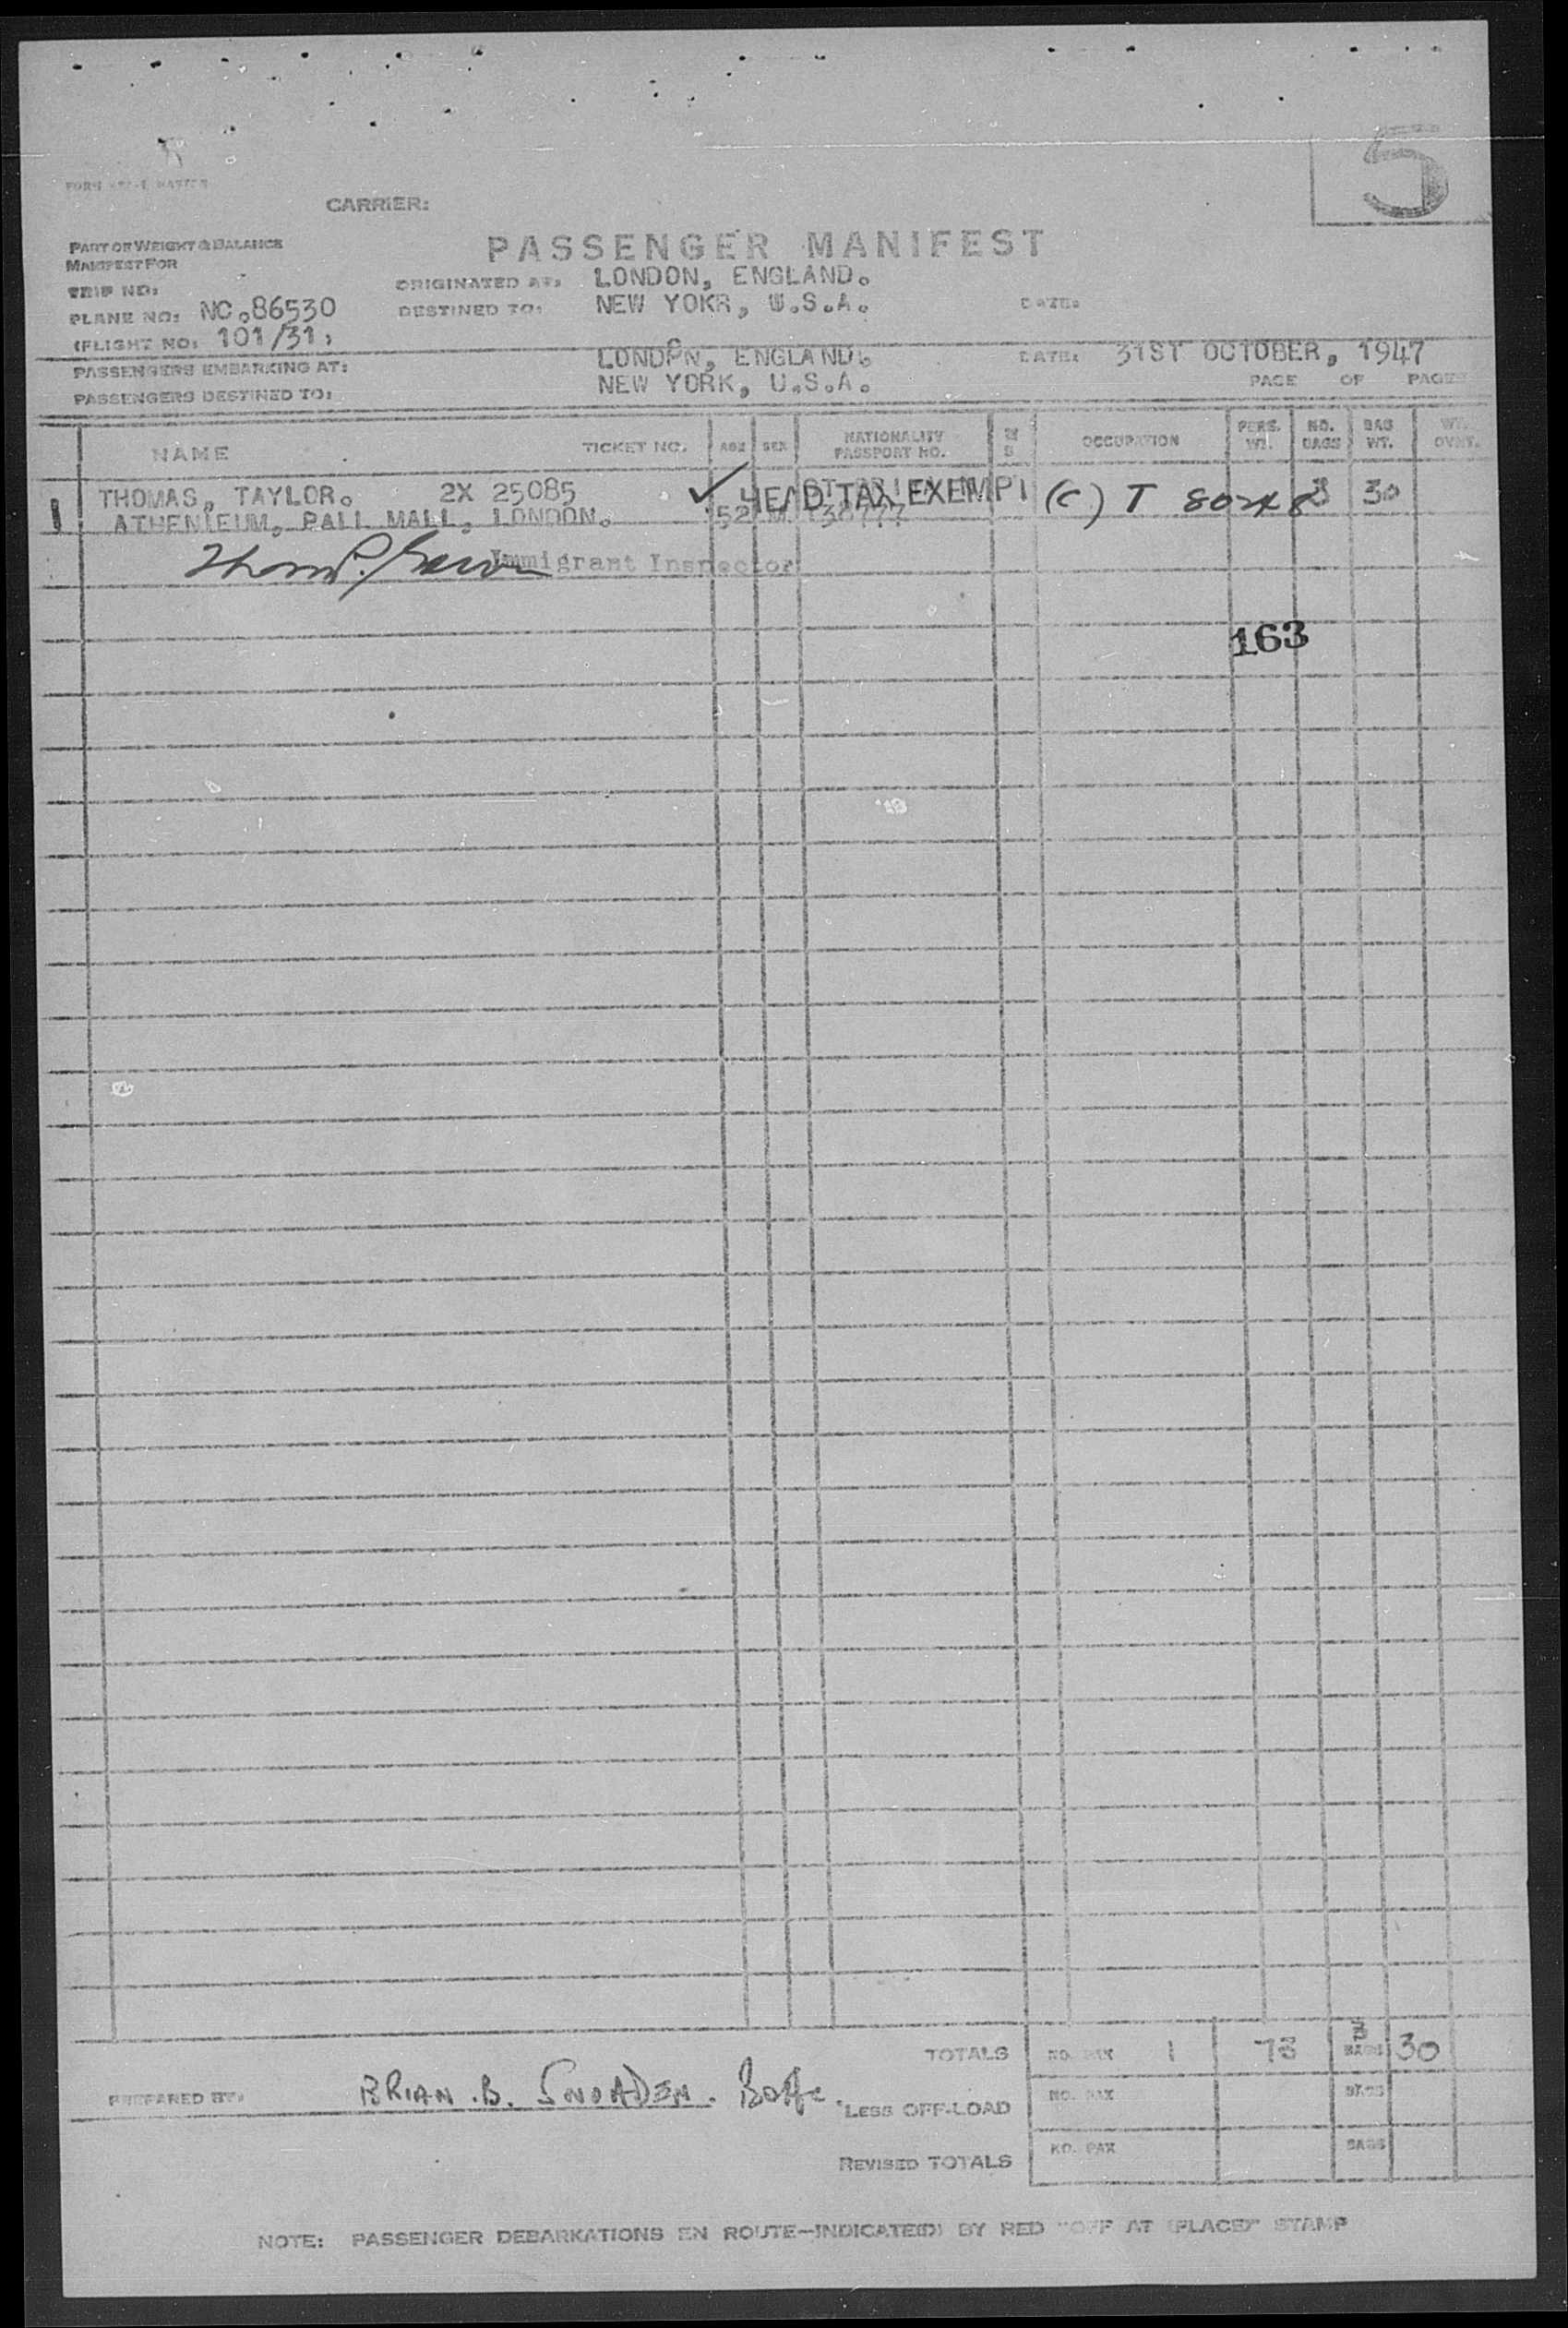 5
CARRIER:
PART OF WEIGHT & BALANCE
MANIFEST FOR
PASSENGER MANIFEST
TRIP NO:
ORIGINATED AT: LONDON, ENGLAND.
PLANE NO: NC.86530
DESTINED TO: NEW YOKR, U.S.A. DATE:
(FLIGHT NO: 101/31)
PASSENGERS EMBARKING AT: LONDON, ENGLAND. DATE: 31ST OCTOBER, 1947
PASSENGERS DESTINED TO: NEW YORK, U.S.A. PAGE OF PAGES
NAME TICKET NO. AGE SEX NATIONALITY PASSPORT NO. M S OCCUPATION PERS. WT. NO. BAGS BAG WT. WT. OVWT.
1 THOMAS, TAYLOR. 2X 25085 ✓ HEAD TAX EXEMPT (C) T 3 30
ATHENIEUM, PALL MALL, LONDON. 52 M
Immigrant Inspector
163
TOTALS NO. PAX 1 73 3 BAGS 30
PREPARED BY: BRIAN .B. SNOADEN. BOAC.
LESS OFF-LOAD NO. PAX BAGS
REVISED TOTALS NO. PAX BAGS
NOTE: PASSENGER DEBARKATIONS EN ROUTE—INDICATE(D) BY RED "OFF AT (PLACE)" STAMP